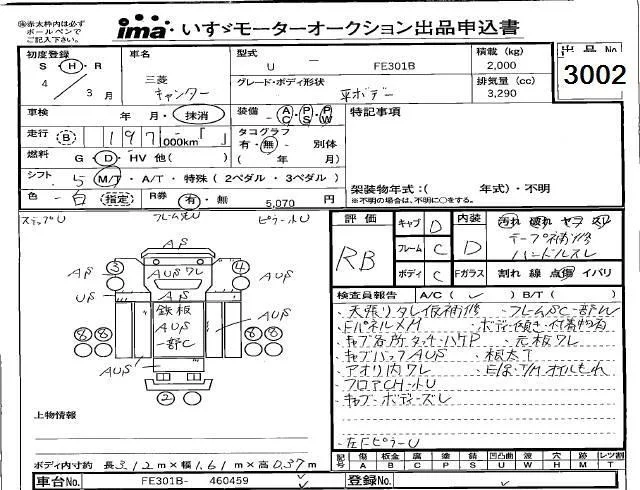 ㊟赤太枠内は必ず
ボールペンで
ご記入下さい。
ima・いすゞモーターオークション出品申込書
初度登録
S・H・R
4/3月
車名
三菱
キャンター
型式
U ー FE301B
グレード・ボディ形状
平ボデー
積載 (kg)
2,000
排気量 (cc)
3,290
出品 No
3002
車検 年・月・抹消
走行 B 197 000km「 」
燃料 G・D・HV 他( )
シフト 5 M/T・A/T・特殊(2ペダル・3ペダル)
色 白 (指定) R券 有・無 5,070 円
装備 AC PS PW
タコグラフ
有・無 - 別体
( 年 月)
特記事項
架装物年式:( 年式)・不明
※不明の場合は、不明に○をする。
評価
RB
キャブ D
フレーム C
ボディ C
内装 D
Fガラス
汚れ 破れ ヤコ スレ
テープ補修
ハンドルスレ
割れ 線 点傷 イバリ
ステップU
フレーム先U
ピラートU
AS
AUS ワレ
AS
AUS
3
4
US
鉄板
AUS
一部C
AUS
8 8
8 8
AUS
2
検査員報告 A/C ( ✓ ) B/T ( )
・天張りタレ仮補修 ・フレームSC一部H
・FパネルメH ・ボディ傾き・付着物有
・キャブ各所タッチ・ハケP ・元板ワレ
・キャブバックAUS ・根太T
・アオリ内ワレ ・E/B・T/Mオイルもれ
・フロアCH一トU
・キャブ・ボディーズレ
・左FピラーU
上物情報
ボディ内寸約 長3.12m×幅1.61m×高0.37m
記号
傷 板金 腐 塗 錆 凹凸曲 波 穴 跡 レンズ割
A B C P S U W H M T
車台No. FE301B- 460459
登録No.